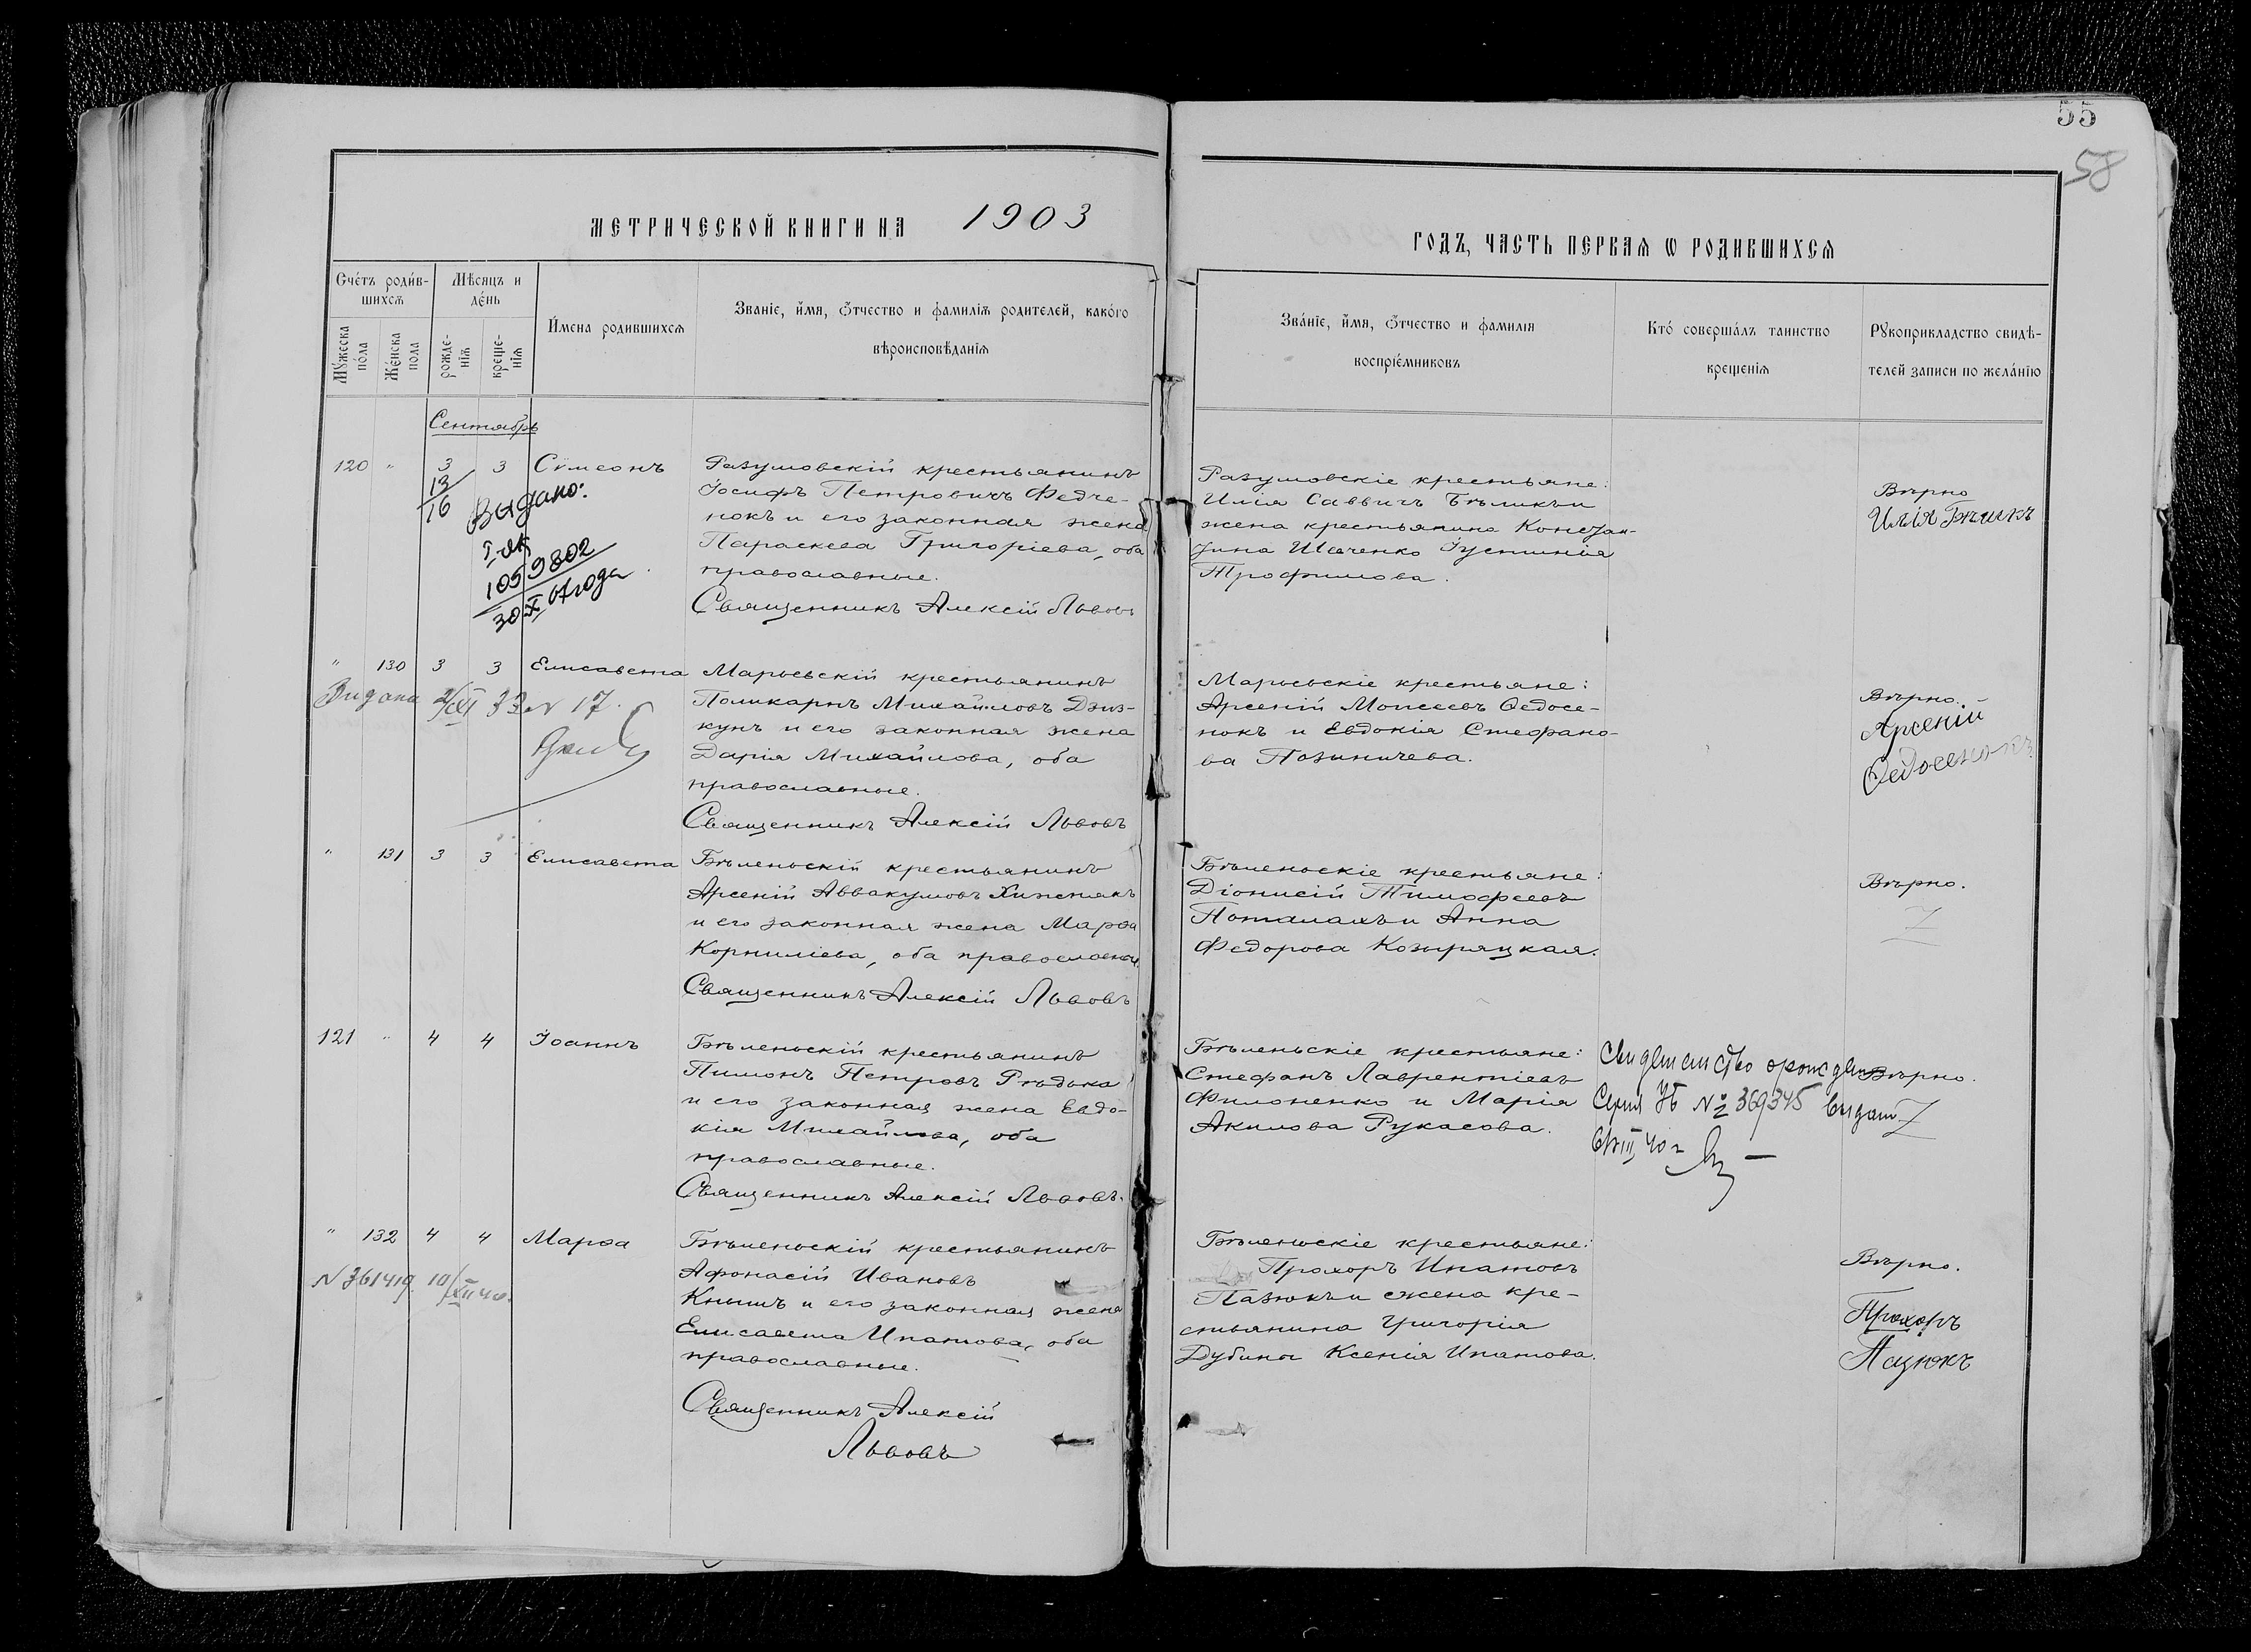 55
58
МЕТРИЧЕСКОЙ КНИГИ НА 1903
ГОДЪ, ЧАСТЬ ПЕРВАЯ Ѡ РОДИВШИХСѦ
Сче́тъ роди́в-
шихсѧ
Мѣсяцъ и
де́нь
Мꙋ́жеска
по́ла
Же́нска
пола
рожде-
нїѧ
креще-
нїѧ
И҆мена родившихсѧ
Званїе, и҆́мя, ѻ҆́тчество и фамилїѧ родителей, како́го
вѣроисповѣданїѧ
Зва́нїе, и҆́мя, ѻ҆́тчество и фамилїя
воспрїе́мниковъ
Кто́ соверша́лъ таинство
крещенїѧ
Рꙋкоприкладство свидѣ-
телей записи по жела́нїю
Сентябрь
120 " 3 3 Сѵмеонъ
13
16
Выдано:
1059802
30 X 67 года
Разумовскій крестьянинъ
Іосифъ Петровичъ Федче-
нокъ и его законная жена
Параскева Григоріева, оба
православные.
Священникъ Алексій Львовъ
Разумовскіе крестьяне:
Илія Саввичъ Бѣликъ и
жена крестьянина
Шевченко Іустинія
Трофимова.
Вѣрно
Илія Бѣликъ
" 130 3 3 Елисавета
Видана 2/XI 33 N 17.
Марьевскій крестьянинъ
Поликарпъ Михайловъ Дзиз-
кунъ и его законная жена
Дарія Михайлова, оба
православные.
Священникъ Алексій Львовъ
Марьевскіе крестьяне:
Арсеній Моисеевъ Ѳедосе-
нокъ и Евдокія Стефано-
ва Позиничева.
Вѣрно.
Арсеній
Ѳедосенокъ
" 131 3 3 Елисавета
Бѣленьскій крестьянинъ
Арсеній Аввакумовъ Хижнякъ
и его законная жена Марѳа
Корниліева, оба православные.
Священникъ Алексій Львовъ
Бѣленьскіе крестьяне:
Діонисій Тимофеевъ
Поталахъ и Анна
Федорова Козыряцкая.
Вѣрно.
121 " 4 4 Іоаннъ
Бѣленьскій крестьянинъ
Пимонъ Петровъ Рѣдька
и его законная жена Евдо-
кія Михайлова, оба
православные.
Священникъ Алексій Львовъ.
Бѣленьскіе крестьяне:
Стефанъ Лаврентіевъ
Филоненко и Марія
Акилова Рукасова.
Свидетельство о рожден
Серия УБ № 369345 выдан
Вѣрно.
" 132 4 4 Марѳа
N 361419 10/XII 40.
Бѣленьскій крестьянинъ
Афонасій Ивановъ
Кнышъ и его законная жена
Елисавета Ипатова, оба
православные.
Священникъ Алексій
Львовъ
Бѣленьскіе крестьяне:
Прохоръ Ипатовъ
Пазюкъ и жена кре-
стьянина Григорія
Дубины Ксенія Ипатова.
Вѣрно.
Прохоръ
Пазюкъ